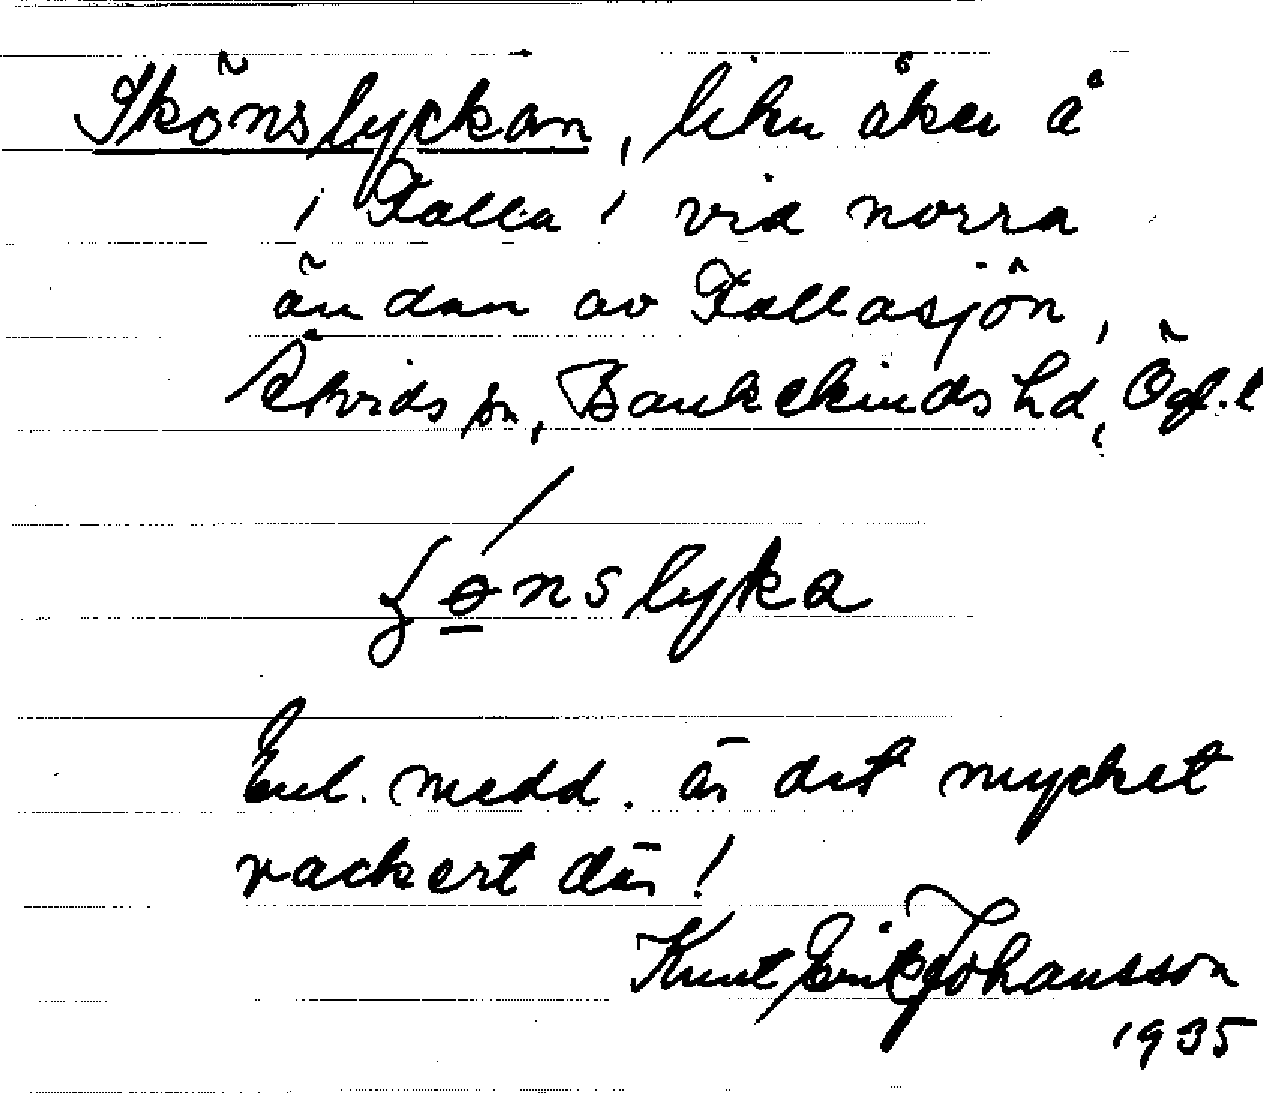 Skönslyckan, liten åker å
i Falla i vid norra
ändan av Fallasjön,
Åtvids sn, Bankekinds hd, Ögl.l
ʃɵnslyka
Enl. medd. är det mycket
vackert där!
Knut Erik Johansson
1935